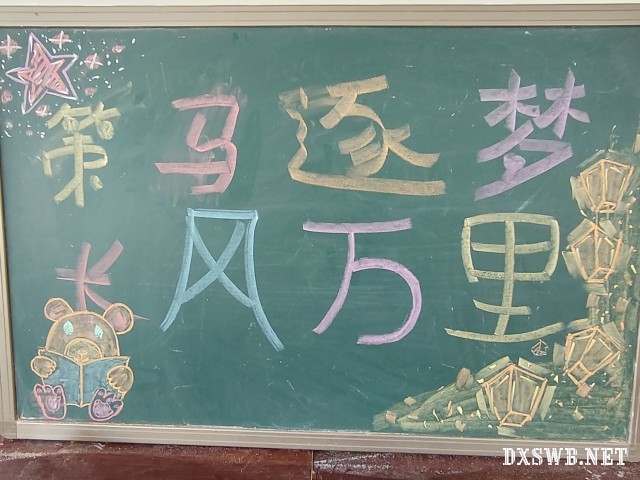 策马逐梦
长风万里
DXSWB.NET